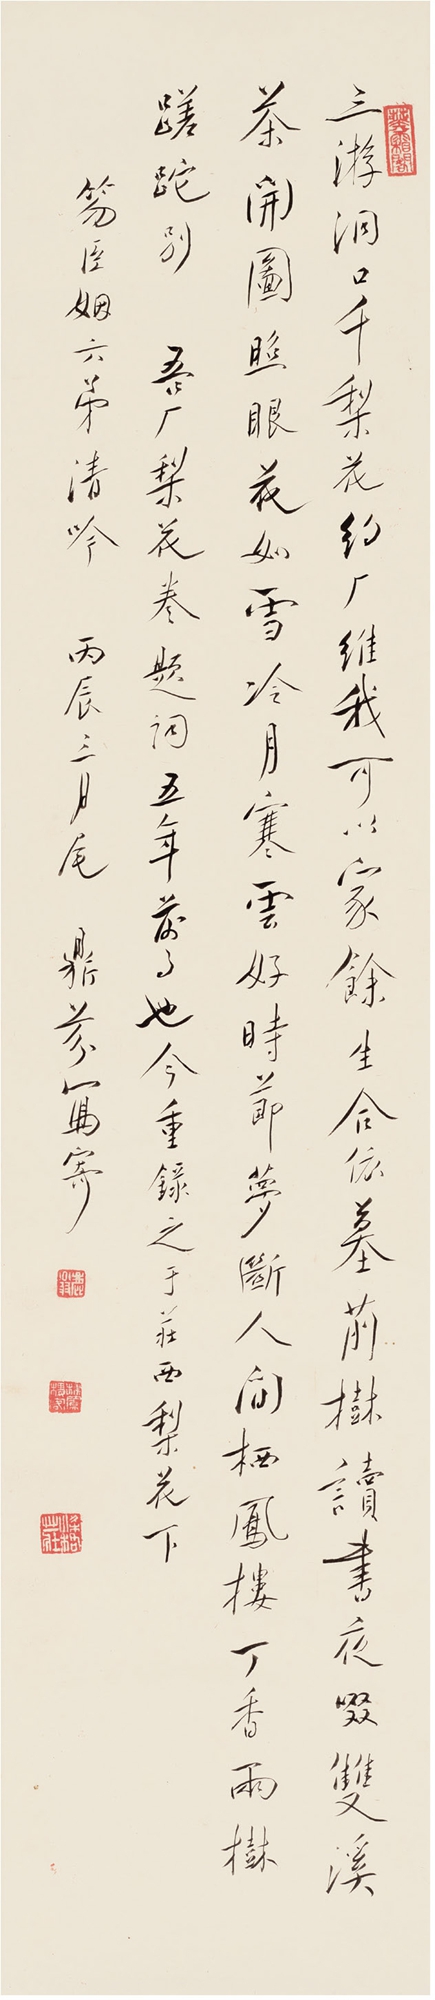 三游洞口千梨花約厂維我可以家餘生合依墓前樹讀書夜啜雙溪
茶開圖照眼花如雪冷月寒雲好時節夢斷人間栖鳳樓丁香兩樹
蹉跎別　吾厂梨花卷題詞五年前事也今重錄之于莊西梨花下
笏臣姻六弟清吟　丙辰三月尾　鼎芬寫寄